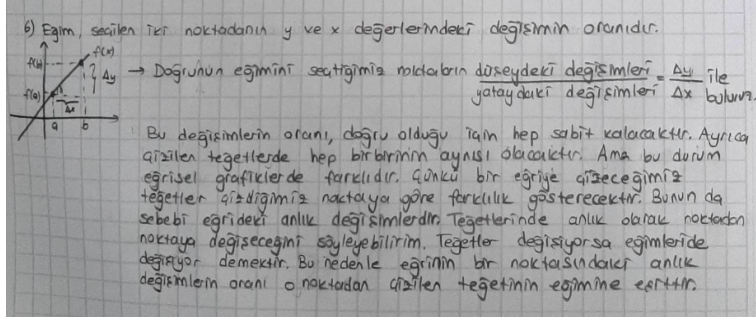 6) Eğim, seçilen iki noktadanın y ve x değerlerindeki değişimin oranıdır.
f(x)
f(b)
Δy
f(a)
Δx
a b
→ Doğrunun eğimini seçtiğimiz noktaların düşeydeki değişimleri / yataydaki değişimleri = Δy / Δx ile bulunur.
Bu değişimlerin oranı, doğru olduğu için hep sabit kalacaktır. Ayrıca
çizilen teğetlerde hep birbirinin aynısı olacaktır. Ama bu durum
eğrisel grafiklerde farklıdır. Çünkü bir eğriye çizeceğimiz
teğetler çizdiğimiz noktaya göre farklılık gösterecektir. Bunun da
sebebi eğrideki anlık değişimlerdir. Teğetlerinde anlık olarak noktadan
noktaya değişeceğini söyleyebilirim. Teğetler değişiyorsa eğimleride
değişiyor demektir. Bu nedenle eğrinin bir noktasındaki anlık
değişimlerin oranı o noktadan çizilen teğetinin eğimine eşittir.